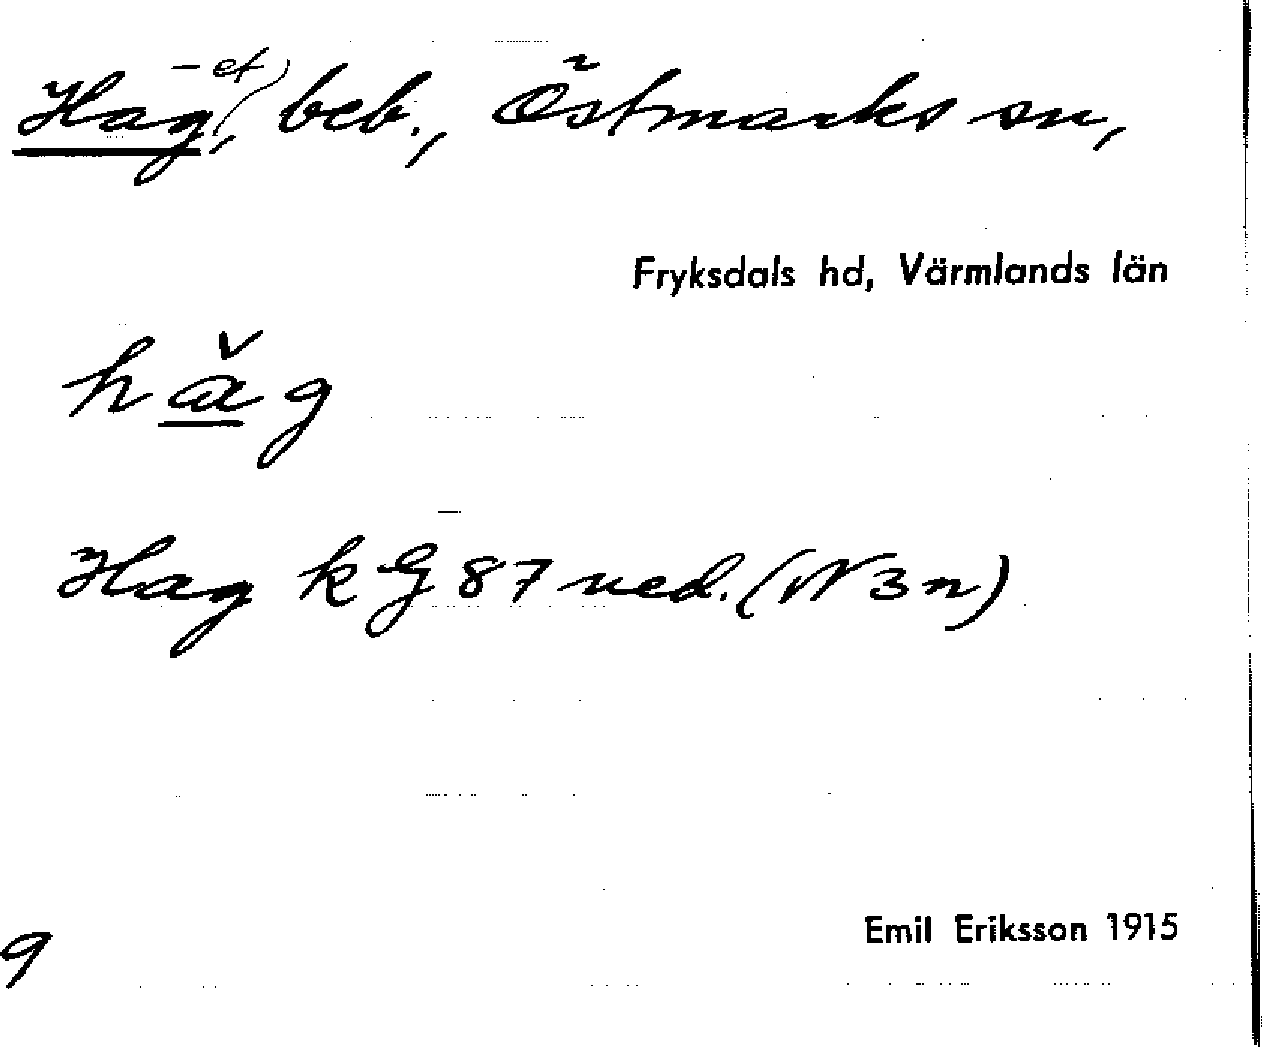 Hag(-et), beb., Östmarks sn,
Fryksdals hd, Värmlands län
hǎg
Hag k G 87 ned. (W 3 n)
Emil Eriksson 1915
9